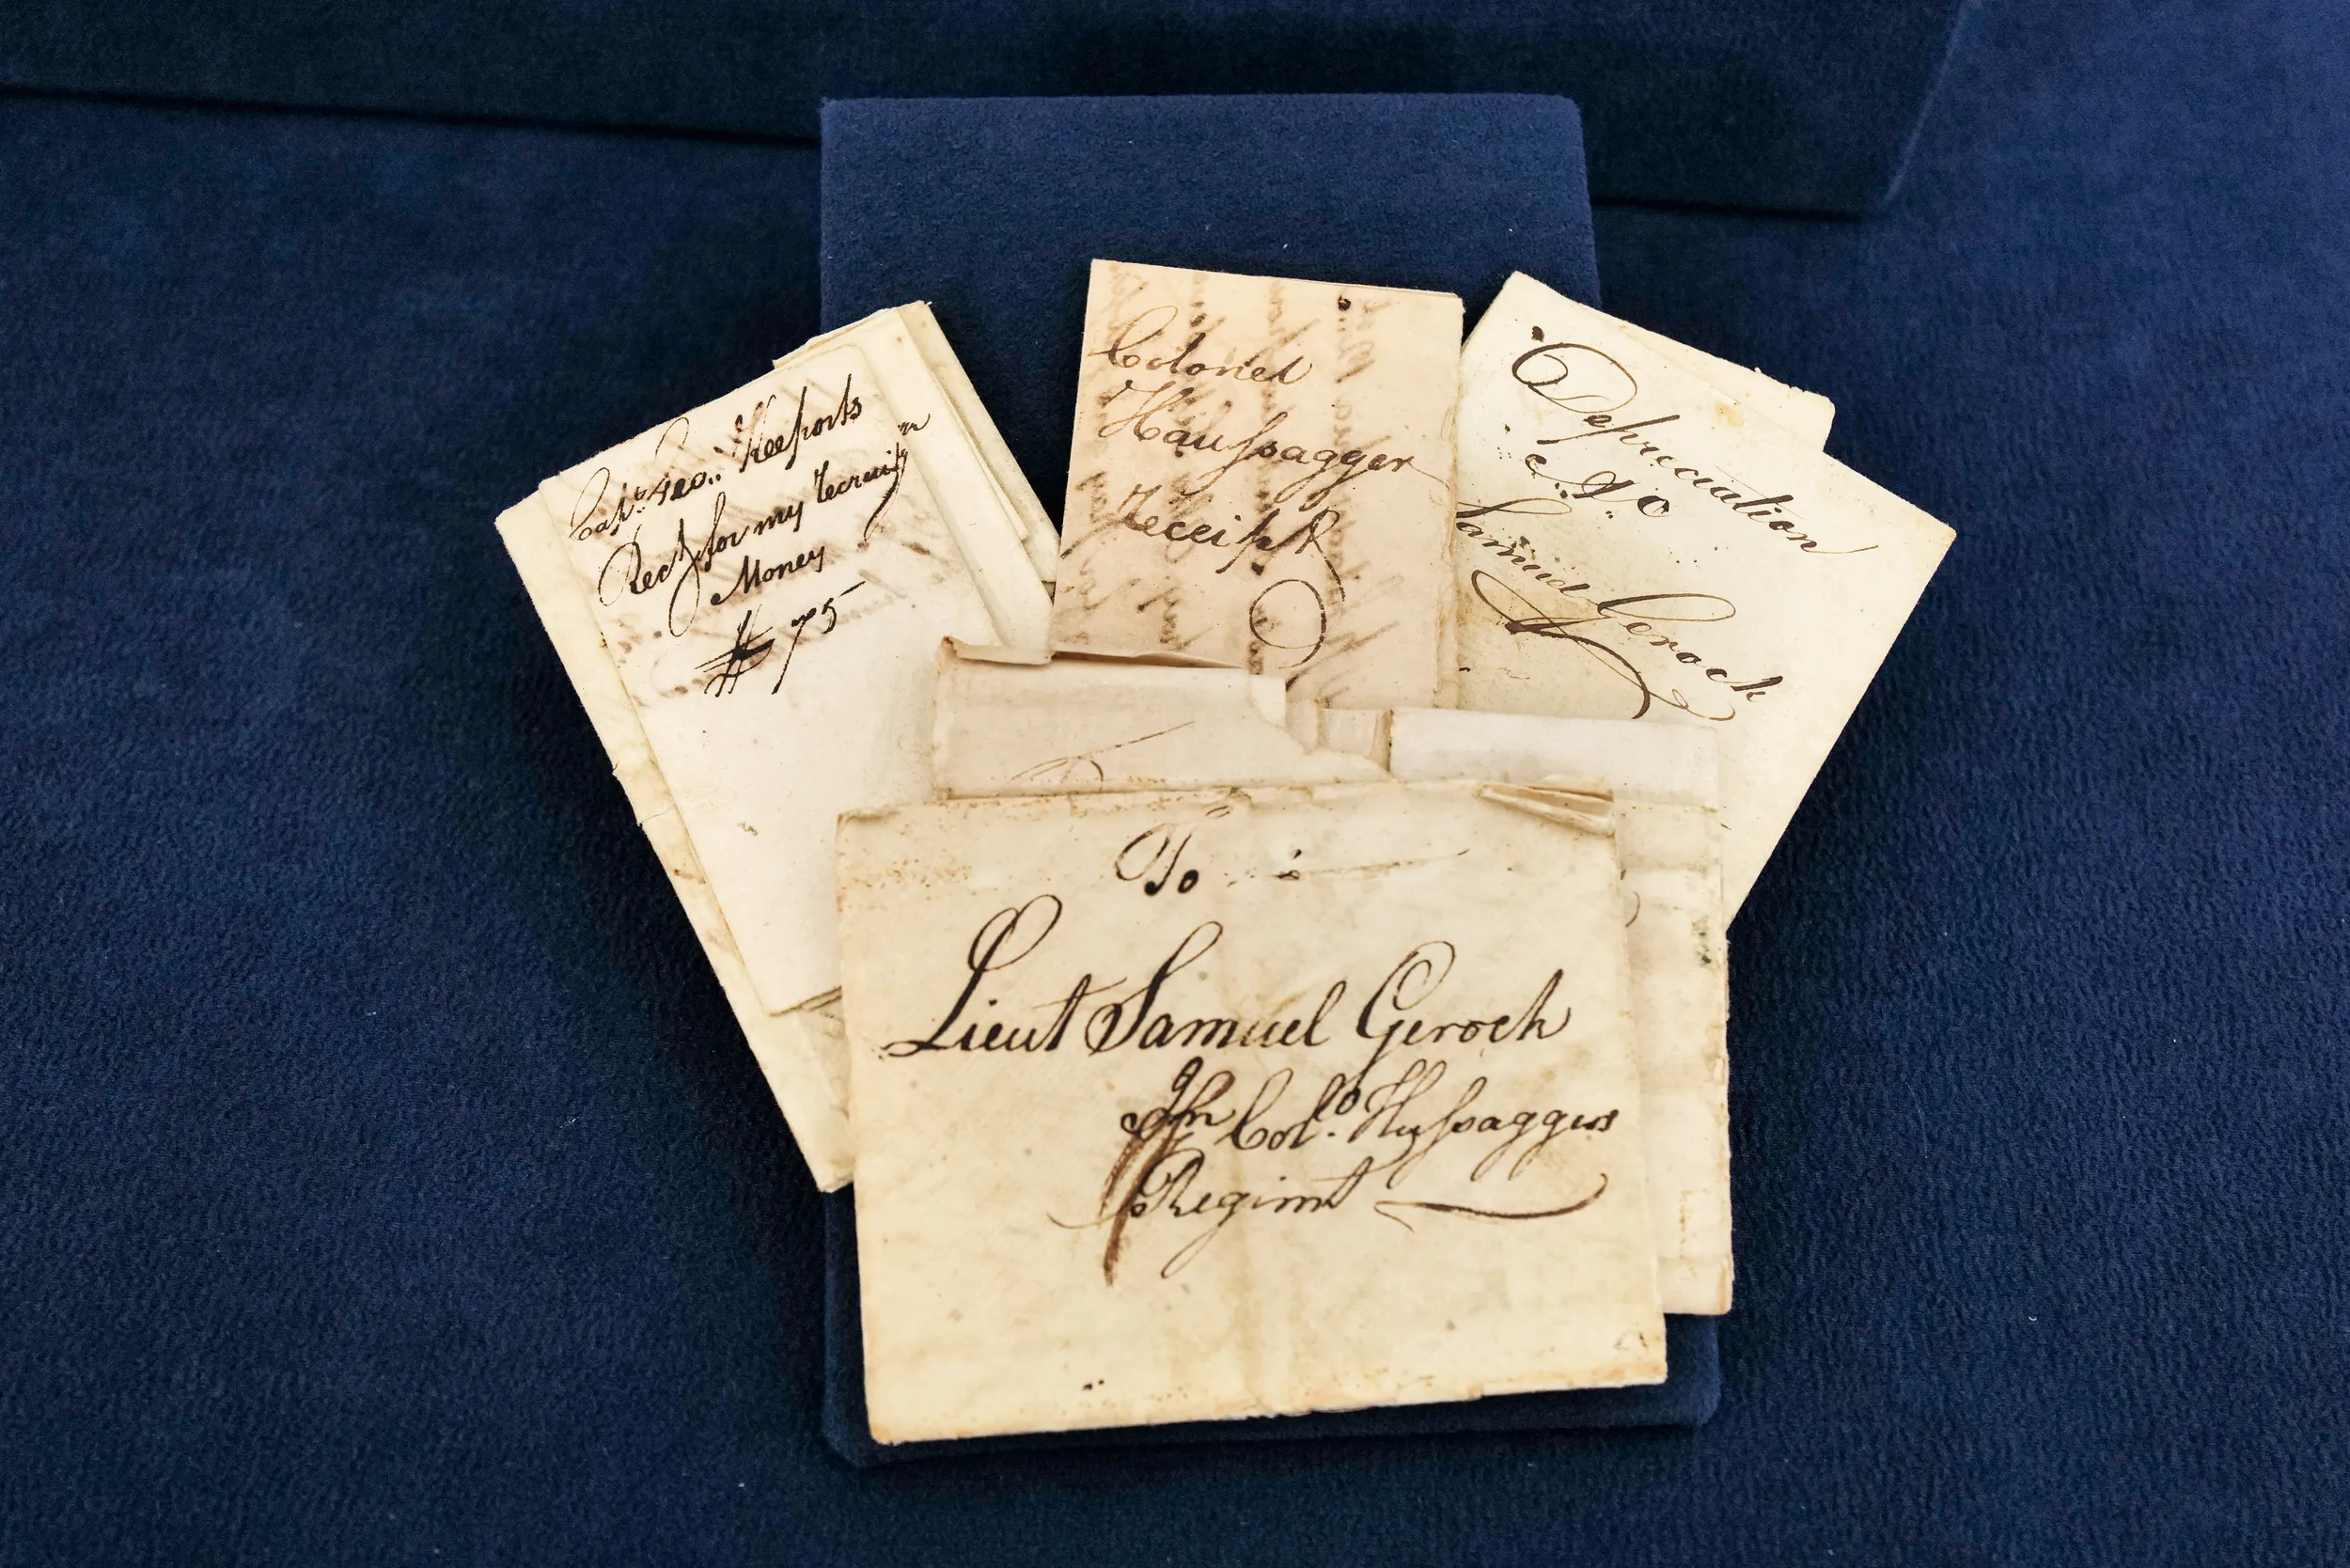 Capt. Geo. Keeports
Rect. for my recruitg
Money
# 75
Colonel
Haussagger
receipt
Depreciation
Samuel Gerock
To
Lieut Samuel Gerock
In Colo. Hussaggers
Regimt